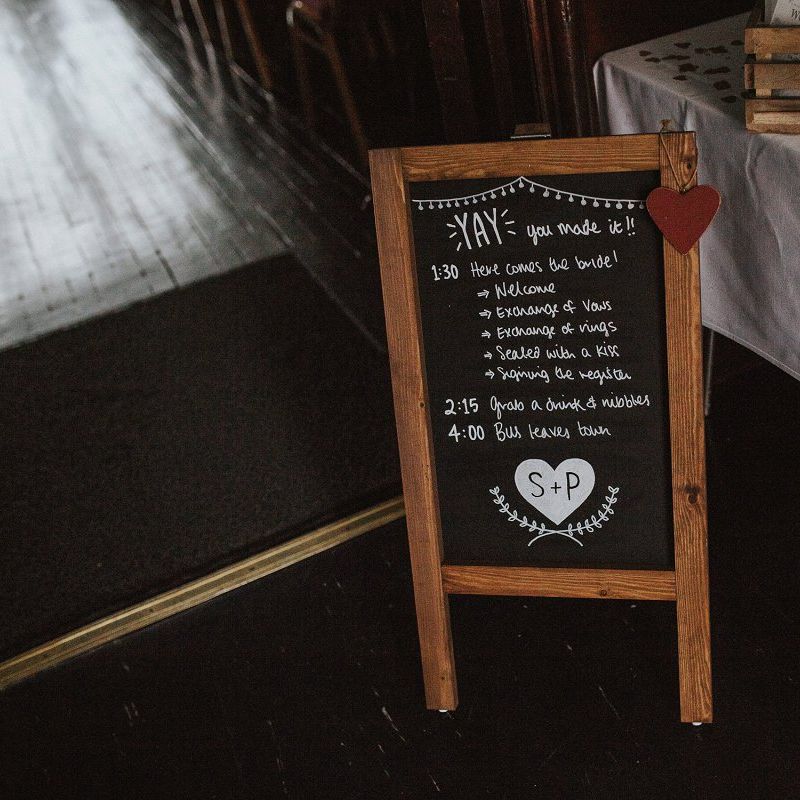 YAY you made it!!
1:30 Here comes the bride!
⇒ Welcome
⇒ Exchange of Vows
⇒ Exchange of rings
⇒ Sealed with a kiss
⇒ Signing the register
2:15 Grab a drink & nibbles
4:00 Bus leaves town
S + P